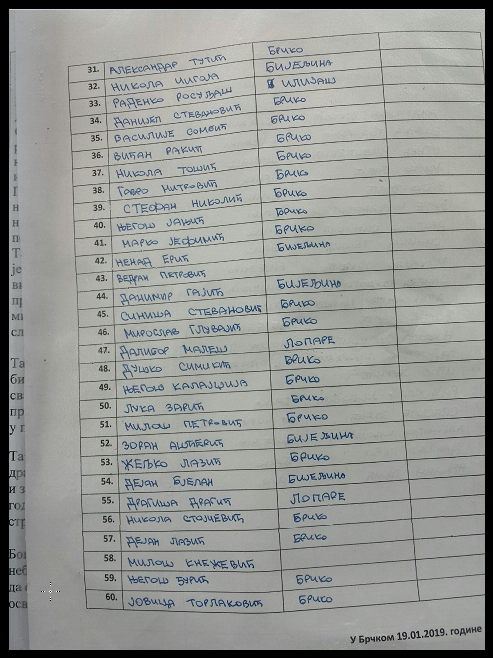 31. АЛЕКСАНДАР ТУТИЋ БРИКО
32. НИКОЛА ЧИГОЈА БИЈЕЉИНА
33. РАДЕНКО РОСУЉАШ ИЛИЈАШ
34. ДАНИЈЕЛ СТЕВАНОВИЋ БРИКО
35. ВАСИЛИЈЕ БРИКО
36. ВИЂАН РАКИЋ БРИКО
37. НИКОЛА ТОШИЋ БРИКО
38. ГАВРО МИТРОВИЋ БРИКО
39. СТЕФАН НИКОЛИЋ БРИКО
40. ЊЕГОШ ЈАЊИЋ БРИКО
41. МАРКО ЈЕФИМИЋ БРИКО
42. НЕНАД ЕРИЋ БИЈЕЉИНА
43. ВЕДРАН ПЕТРОВИЋ
44. ДАНИМИР ГАЈИЋ БИЈЕЉИНА
45. СИНИША СТЕВАНОВИЋ БРИКО
46. МИРОСЛАВ ГЛУВАЈИЋ БРИКО
47. ДАЛИБОР МАЛЕШ ЛОПАРЕ
48. ДУШКО СИМИКИЋ БРИКО
49. ЊЕГОШ КАЛАЈЏИЈА БРИКО
50. ЛУКА ЗАРИЋ БРИКО
51. МИЛОШ ПЕТРОВИЋ БРИКО
52. ЗОРАН БИЈЕЉИНА
53. ЖЕЉКО ЛАЗИЋ БРИКО
54. ДЕЈАН БЈЕЛАН БИЈЕЉИНА
55. ДРАГИША ДРАГИЋ ЛОПАРЕ
56. НИКОЛА СТОЈЧЕВИЋ БРИКО
57. ДЕЈАН ЛАЗИЋ БРИКО
58. МИЛОШ КНЕЖЕВИЋ
59. ЊЕГОШ ЂУРИЋ БРИКО
60. ЈОВИЦА ТОРЛАКОВИЋ БРИКО
У Брчком 19.01.2019. године